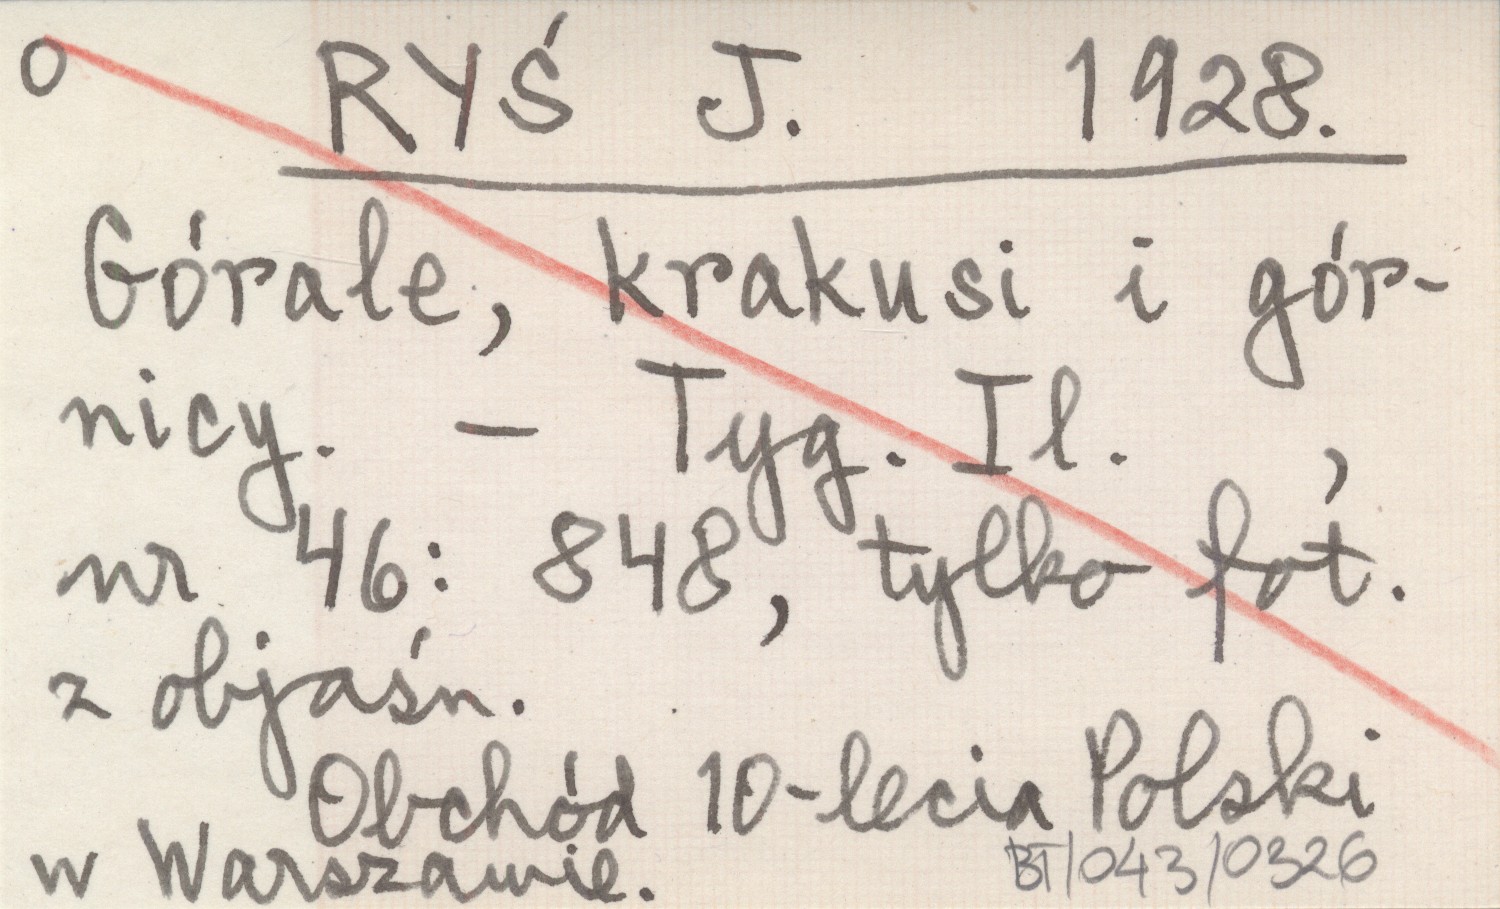 o RYŚ J. 1928.
Górale, krakusi i gór-
nicy. - Tyg. Il. ,
nr 46: 848, tylko fot.
z objaśn.
Obchód 10-lecia Polski
w Warszawie.
BT/043/0326